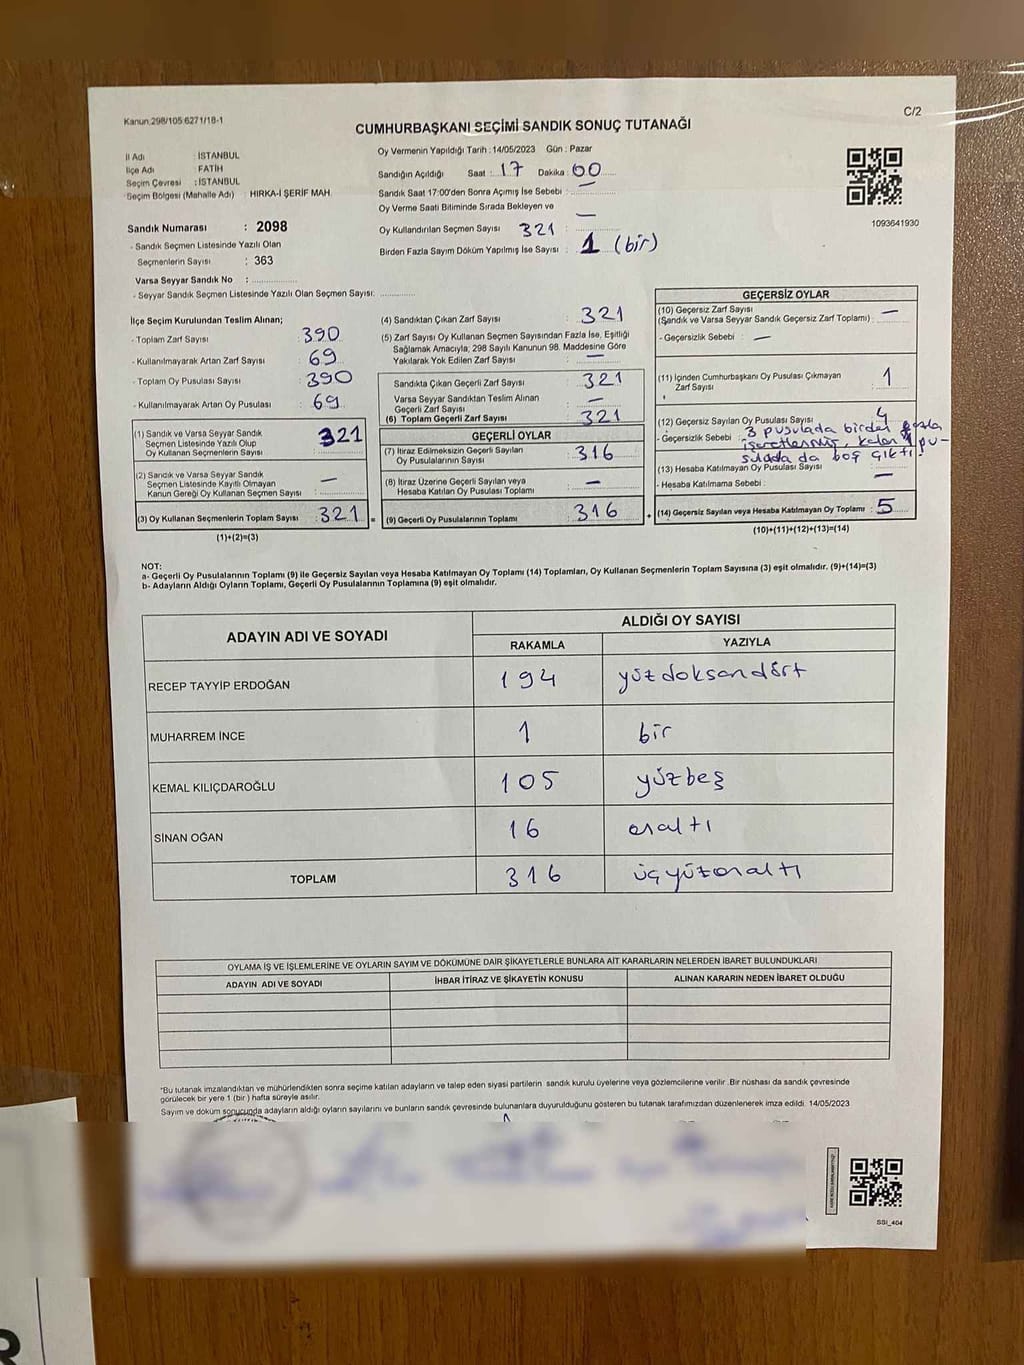 Kanun:298/105 6271/18-1
C/2
CUMHURBAŞKANI SEÇİMİ SANDIK SONUÇ TUTANAĞI
İl Adı : İSTANBUL
İlçe Adı : FATİH
Seçim Çevresi : İSTANBUL
Seçim Bölgesi (Mahalle Adı) : HIRKA-İ ŞERİF MAH.
Oy Vermenin Yapıldığı Tarih : 14/05/2023 Gün : Pazar
Sandığın Açıldığı Saat : 17 Dakika : 00
Sandık Saat 17:00'den Sonra Açılmış İse Sebebi : —
Oy Verme Saati Bitiminde Sırada Bekleyen ve
Oy Kullandırılan Seçmen Sayısı : —
321
Birden Fazla Sayım Döküm Yapılmış İse Sayısı : 1 (bir)
1093641930
Sandık Numarası : 2098
- Sandık Seçmen Listesinde Yazılı Olan
Seçmenlerin Sayısı : 363
Varsa Seyyar Sandık No :
- Seyyar Sandık Seçmen Listesinde Yazılı Olan Seçmen Sayısı:
İlçe Seçim Kurulundan Teslim Alınan;
- Toplam Zarf Sayısı 390
- Kullanılmayarak Artan Zarf Sayısı 69
- Toplam Oy Pusulası Sayısı 390
- Kullanılmayarak Artan Oy Pusulası 69
(1) Sandık ve Varsa Seyyar Sandık
Seçmen Listesinde Yazılı Olup
Oy Kullanan Seçmenlerin Sayısı 321
(2) Sandık ve Varsa Seyyar Sandık
Seçmen Listesinde Kayıtlı Olmayan
Kanun Gereği Oy Kullanan Seçmen Sayısı —
(3) Oy Kullanan Seçmenlerin Toplam Sayısı 321 =
(1)+(2)=(3)
(4) Sandıktan Çıkan Zarf Sayısı 321
(5) Zarf Sayısı Oy Kullanan Seçmen Sayısından Fazla İse, Eşitliği
Sağlamak Amacıyla, 298 Sayılı Kanunun 98. Maddesine Göre
Yakılarak Yok Edilen Zarf Sayısı —
Sandıkta Çıkan Geçerli Zarf Sayısı 321
Varsa Seyyar Sandıktan Teslim Alınan
Geçerli Zarf Sayısı —
(6) Toplam Geçerli Zarf Sayısı 321
GEÇERLİ OYLAR
(7) İtiraz Edilmeksizin Geçerli Sayılan
Oy Pusulalarının Sayısı 316
(8) İtiraz Üzerine Geçerli Sayılan veya
Hesaba Katılan Oy Pusulası Toplamı —
(9) Geçerli Oy Pusulalarının Toplamı 316 +
GEÇERSİZ OYLAR
(10) Geçersiz Zarf Sayısı
(Sandık ve Varsa Seyyar Sandık Geçersiz Zarf Toplamı) : —
- Geçersizlik Sebebi : —
(11) İçinden Cumhurbaşkanı Oy Pusulası Çıkmayan
Zarf Sayısı 1
(12) Geçersiz Sayılan Oy Pusulası Sayısı 4
- Geçersizlik Sebebi : 3 pusulada birden fazla
işaretlenmiş, kalan 1 pu-
sulada da boş çıktı!
(13) Hesaba Katılmayan Oy Pusulası Sayısı —
- Hesaba Katılmama Sebebi :
(14) Geçersiz Sayılan veya Hesaba Katılmayan Oy Toplamı : 5
(10)+(11)+(12)+(13)=(14)
NOT:
a- Geçerli Oy Pusulalarının Toplamı (9) ile Geçersiz Sayılan veya Hesaba Katılmayan Oy Toplamı (14) Toplamları, Oy Kullanan Seçmenlerin Toplam Sayısına (3) eşit olmalıdır. (9)+(14)=(3)
b- Adayların Aldığı Oyların Toplamı, Geçerli Oy Pusulalarının Toplamına (9) eşit olmalıdır.
ADAYIN ADI VE SOYADI
ALDIĞI OY SAYISI
RAKAMLA YAZIYLA
RECEP TAYYİP ERDOĞAN 194 yüzdoksandört
MUHARREM İNCE 1 bir
KEMAL KILIÇDAROĞLU 105 yüzbeş
SİNAN OĞAN 16 onaltı
TOPLAM 316 üçyüzonaltı
OYLAMA İŞ VE İŞLEMLERİNE VE OYLARIN SAYIM VE DÖKÜMÜNE DAİR ŞİKAYETLERLE BUNLARA AİT KARARLARIN NELERDEN İBARET BULUNDUKLARI
ADAYIN ADI VE SOYADI İHBAR İTİRAZ VE ŞİKAYETİN KONUSU ALINAN KARARIN NEDEN İBARET OLDUĞU
*Bu tutanak imzalandıktan ve mühürlendikten sonra seçime katılan adayların ve talep eden siyasi partilerin sandık kurulu üyelerine veya gözlemcilerine verilir .Bir nüshası da sandık çevresinde
görülecek bir yere 1 (bir ) hafta süreyle asılır.
Sayım ve döküm sonucunda adayların aldığı oyların sayılarını ve bunların sandık çevresinde bulunanlara duyurulduğunu gösteren bu tutanak tarafımızdan düzenlenerek imza edildi. 14/05/2023
SSI_404
R